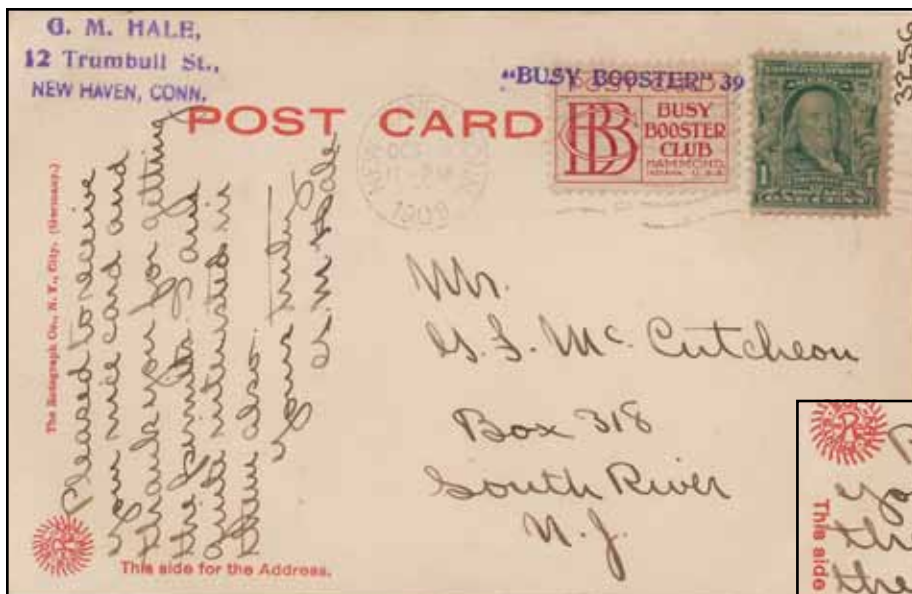 G. M. HALE,
12 Trumbull St.,
NEW HAVEN, CONN.
"BUSY BOOSTER" 39
3256
POST CARD
POST CARD
BBC
BUSY
BOOSTER
CLUB
HAMMOND,
INDIANA, U.S.A.
1
1
1909
The Rotograph Co., N. Y., City. (Germany.)
Pleased to receive
your nice card and
thank you for getting
the permits. I am
quite interested in
them also.
Yours truly
G. M. Hale
Mr.
G. F. Mc Cutcheon
Box 318
South River
N. J.
R
This side for the Address.
R
This side
the